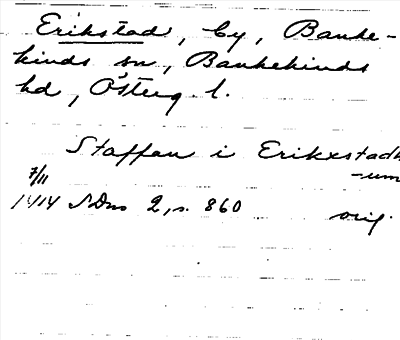 Erikstad, by, Banke-
kinds sn, Bankekinds
hd, Österg. l.
Staffan i Erikxstadh
-um
7/11
1414 SDns 2, s. 860 orig.